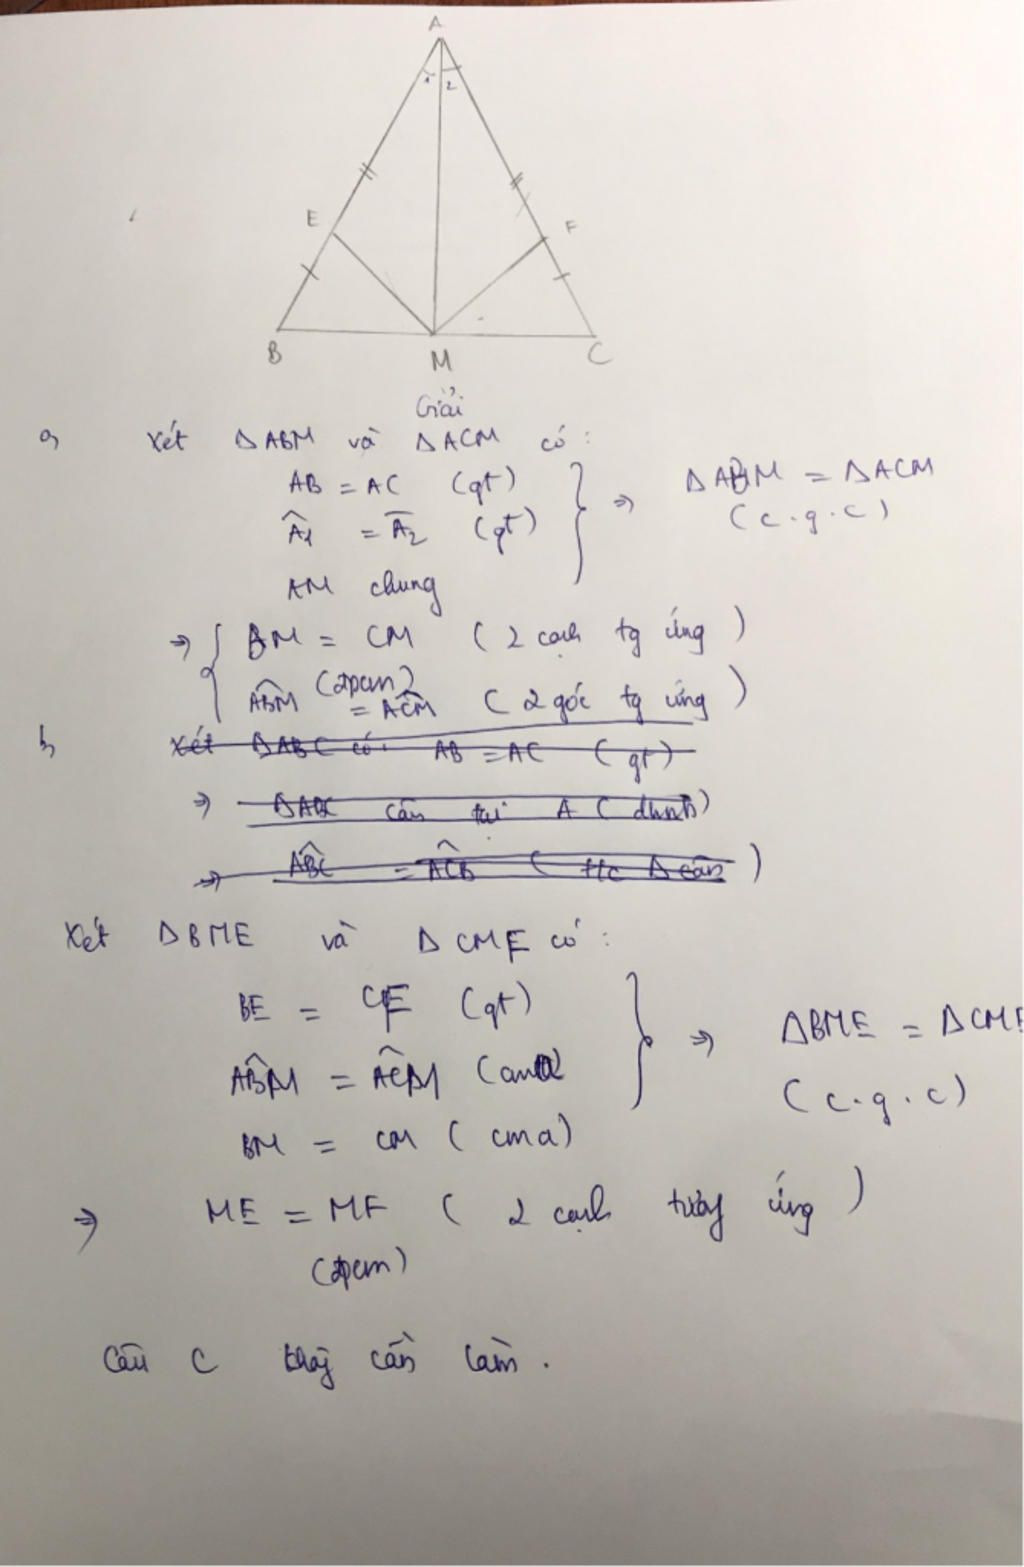 A
1 2
E F
B M C
Giải
a, Xét ΔABM và ΔACM có:
AB = AC (gt)
Â1 = Â2 (gt)
AM chung
⇒ ΔABM = ΔACM
(c.g.c)
⇒ BM = CM (2 cạnh tg ứng)
(đpcm)
ABM = ACM (2 góc tg ứng)
b, Xét ΔABC có: AB = AC (gt)
⇒ ΔABC cân tại A (dhnb)
⇒ ABC = ACB (t/c Δ cân)
Xét ΔBME và ΔCMF có:
BE = CF (gt)
ABM = ACM (cma)
BM = CM (cma)
⇒ ΔBME = ΔCMF
(c.g.c)
⇒ ME = MF (2 cạnh tương ứng)
(đpcm)
Câu C khg cần làm.